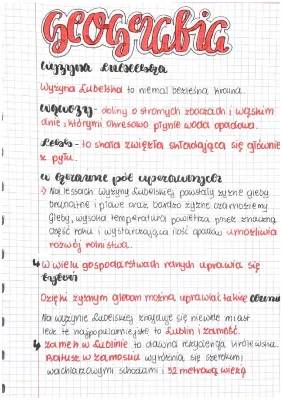 Geografia
Wyżyna Lubelska
Wyżyna Lubelska to niemal bezleśna kraina.
Wąwozy - doliny o stromych zboczach i wąskim
dnie, którymi okresowo płynie woda opadowa.
Less - to skała zwięzła składająca się głównie
z pyłu.
w krainie pól uprawnych
Na lessach Wyżyny Lubelskiej powstały żyzne gleby
brunatne i płowe oraz bardzo żyzne czarnoziemy.
Gleby, wysoka temperatura powietrza przez znaczną
część roku i wystarczająca ilość opadów umożliwia
rozwój rolnictwa.
W wielu gospodarstwach rolnych uprawia się
Dzięki żyznym glebom można uprawiać także
Na wyżynie Lubelskiej znajduje się niewiele miast
lecz te najpopularniejsze to Lublin i Zamość.
Zamek w Lublinie to dawna rezydencja królewska.
Ratusz w Zamościu wyróżnia się szerokimi
wachlarzowymi schodami i 52 metrową wieżą.